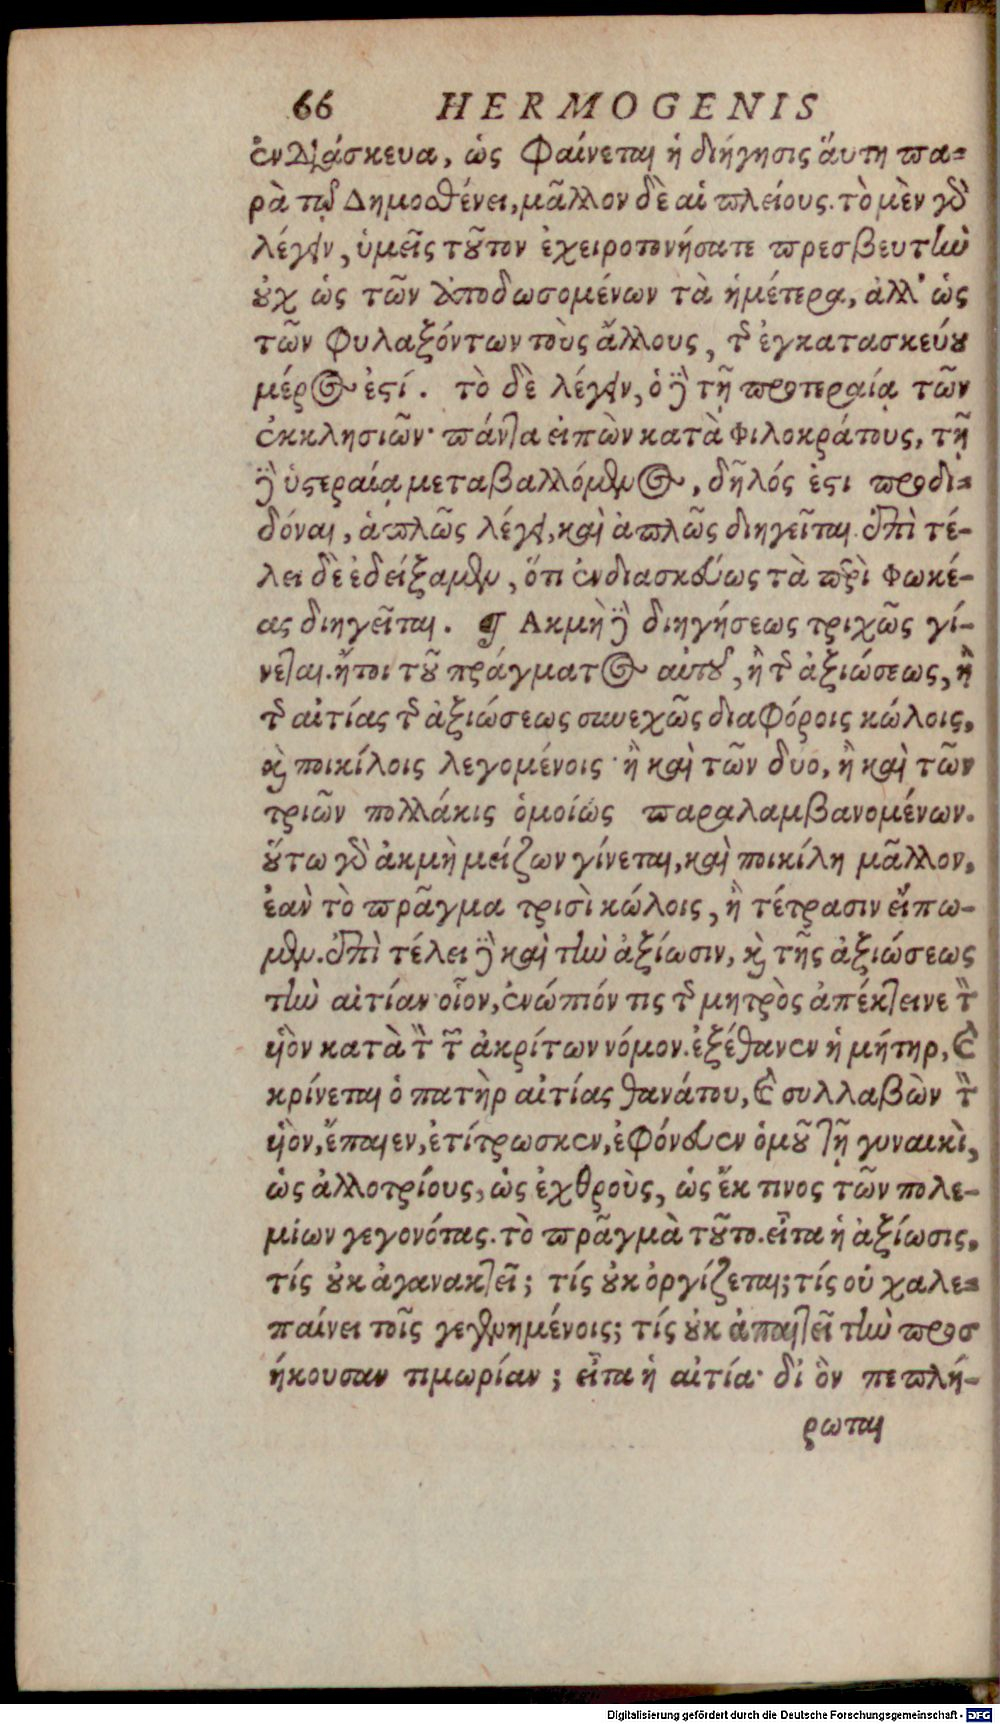 66 HERMOGENIS
ἐνδιάσκευα, ὡς φαίνεται ἡ διήγησις ἅυτη πα-
ρὰ τῷ Δημοσθένει, μᾶλλον δὲ αἱ πλείους. τὸ μὲν γὸ
λέγειν, ὑμεῖς τοῦτον ἐχειροτονήσατε πρεσβευτὴν
οὐχ ὡς τῶν ἀποδωσομένων τὰ ἡμέτερα, ἀλλ' ὡς
τῶν φυλαξόντων τοὺς ἄλλους, τῆς ἐγκατασκεύου
μέρος ἐστί. τὸ δὲ λέγειν, ὁ δὲ τῇ προτεραίᾳ τῶν
ἐκκλησιῶν· πάντα εἰπὼν κατὰ Φιλοκράτους, τῇ
δὲ ὑστεραίᾳ μεταβαλλόμενος, δῆλός ἐστι προδι-
δόναι, ἁπλῶς λέγει, καὶ ἁπλῶς διηγεῖται. ἐπὶ τέ-
λει δὲ ἐδείξαμεν, ὅτι ἐνδιασκεύως τὰ περὶ Φωκέ-
ας διηγεῖται. ¶ Ακμὴ δὲ διηγήσεως τριχῶς γί-
νεται. ἤτοι τοῦ πράγματος αὐτοῦ, ἢ τῆς ἀξιώσεως, ἢ
τῆς αἰτίας τῆς ἀξιώσεως συνεχῶς διαφόροις κώλοις,
καὶ ποικίλοις λεγομένοις· ἢ καὶ τῶν δύο, ἢ καὶ τῶν
τριῶν πολλάκις ὁμοίως παραλαμβανομένων.
οὕτω γὸ ἀκμὴ μείζων γίνεται, καὶ ποικίλη μᾶλλον,
ἐαν τὸ πρᾶγμα τρισὶ κώλοις, ἢ τέτρασιν εἴπω-
μεν. ἐπὶ τέλει δὲ καὶ τὴν ἀξίωσιν, καὶ τῆς ἀξιώσεως
τὴν αἰτίαν· οἷον, ἐνώπιόν τις τῆς μητρὸς ἀπέκτεινε τὸν
υἱὸν κατὰ τὸν τῶν ἀκρίτων νόμον. ἐξέθανεν ἡ μήτηρ, καὶ
κρίνεται ὁ πατὴρ αἰτίας θανάτου, καὶ συλλαβὼν τὸν
υἱὸν, ἔπαιεν, ἐτίτρωσκεν, ἐφόνευεν ὁμοῦ τῇ γυναικὶ,
ὡς ἀλλοτρίους, ὡς ἐχθροὺς, ὡς ἔκ τινος τῶν πολε-
μίων γεγονότας. τὸ πρᾶγμὰ τοῦτο. εἶτα ἡ ἀξίωσις,
τίς οὐκ ἀγανακτεῖ; τίς οὐκ ὀργίζεται; τίς οὐ χαλε-
παίνει τοῖς γεγενημένοις; τίς οὐκ ἀπαιτεῖ τὴν προσ
ήκουσαν τιμωρίαν; εἶτα ἡ αἰτία· δι ὃν πεπλή-
ρωται
Digitalisierung gefördert durch die Deutsche Forschungsgemeinschaft - DFG